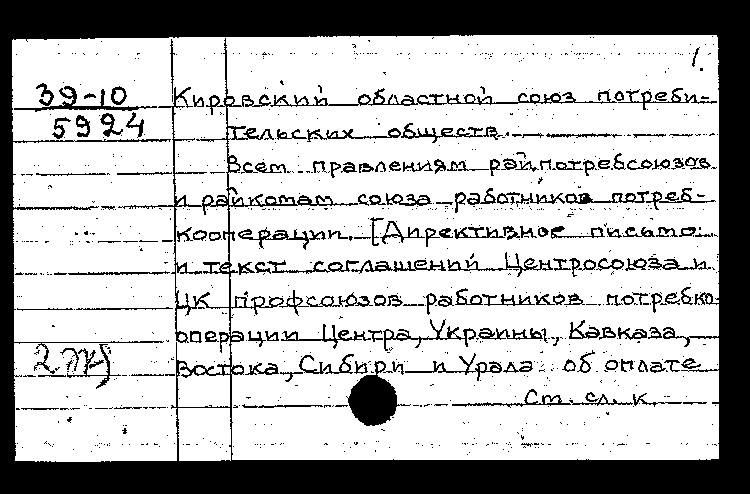 1.
39-10
5924
Кировский областной союз потреби-
тельских обществ.
Всем правлениям райпотребсоюзов
и райкомам союза работников потреб-
кооперации. [Директивное письмо
и текст соглашений Центросоюза и
ЦК профсоюзов работников потребко-
операции Центра, Украины, Кавказа,
Востока, Сибири и Урала об оплате
Ст. сл. к.